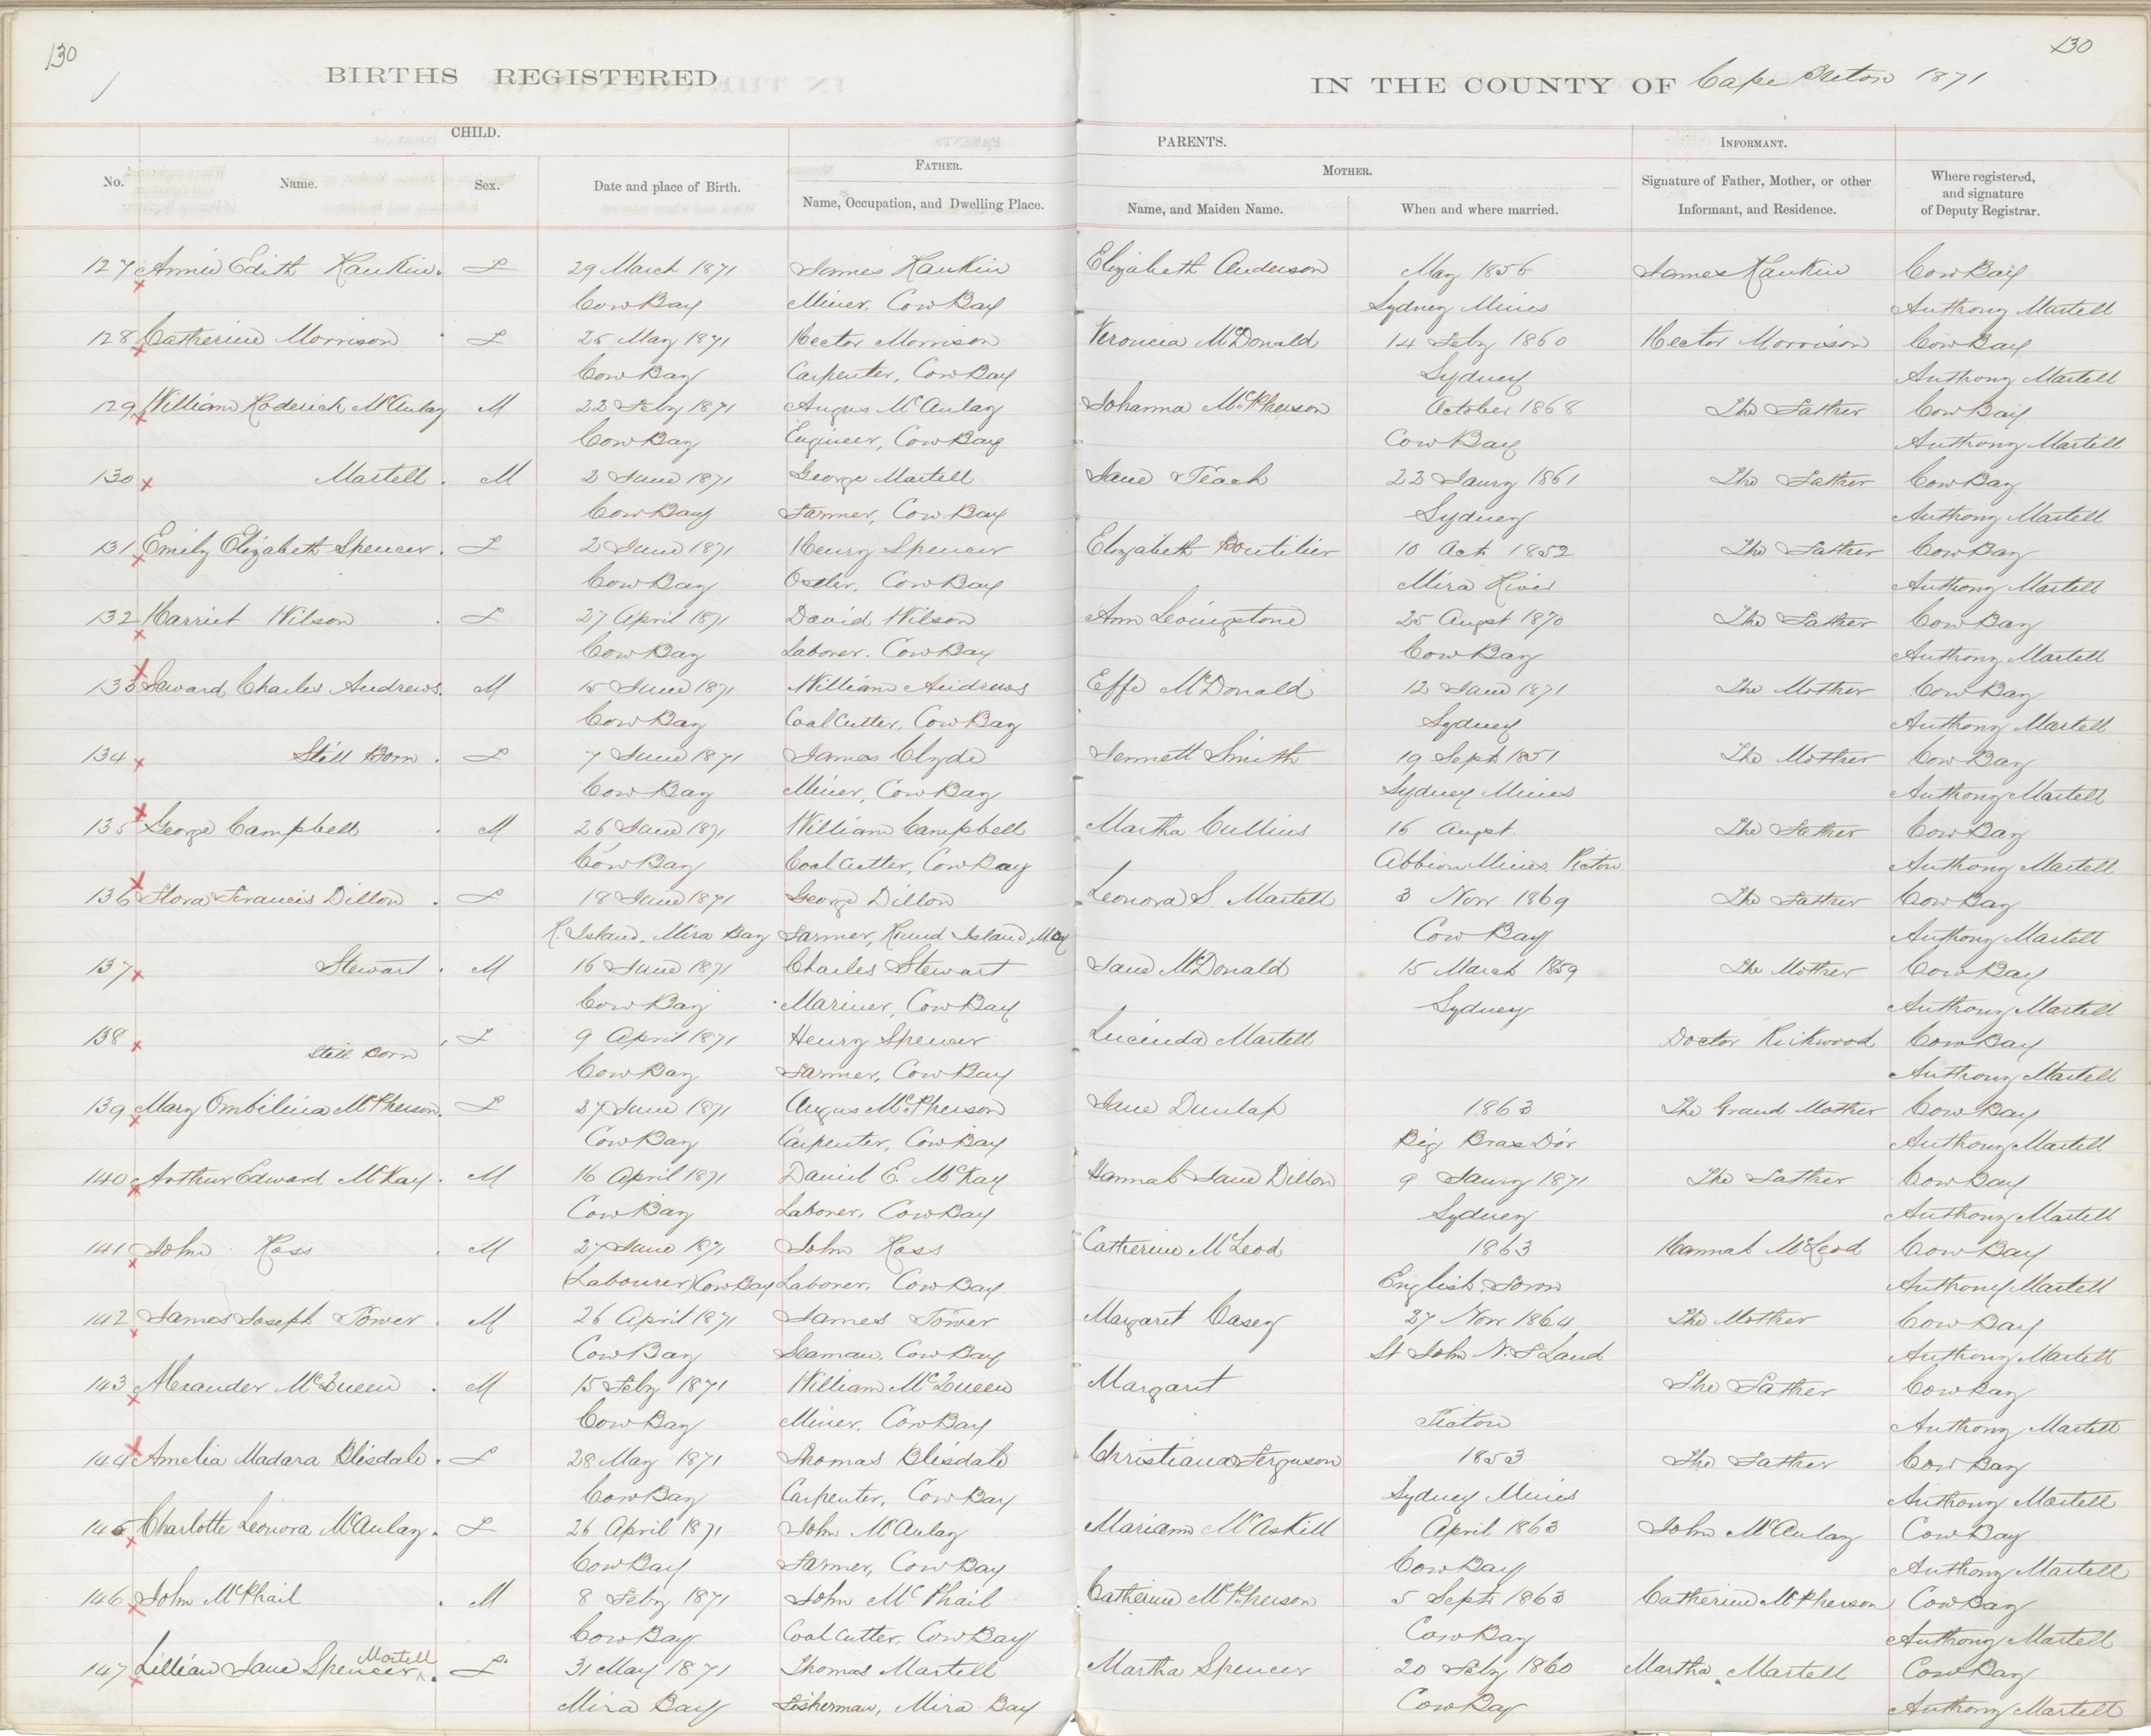 130
130
BIRTHS REGISTERED
IN THE COUNTY OF Cape Breton 1871
CHILD.
PARENTS.
INFORMANT.
FATHER.
MOTHER.
No.
Name.
Sex.
Date and place of Birth.
Name, Occupation, and Dwelling Place.
Name, and Maiden Name.
When and where married.
Signature of Father, Mother, or other
Informant, and Residence.
Where registered,
and signature
of Deputy Registrar.
127 Annie Edith Rankin. F 29 March 1871 James Rankin Elizabeth Anderson May 1856 James Rankin Cow Bay
Cow Bay Miner. Cow Bay Sydney Mines Anthony Martell
128 Catherine Morrison F 25 May 1871 Hector Morrison Veroncia McDonald 14 Feby 1860 Hector Morrison Cow Bay
Cow Bay Carpenter, Cow Bay Sydney Anthony Martell
129 William Roderick McAulay M 22 Feby 1871 Angus McAulay Johanna McPherson October 1868 The Father Cow Bay
Cow Bay Engineer, Cow Bay Cow Bay Anthony Martell
130 Martell. M 2 June 1871 George Martell Jane Teach 22 Jaury 1861 The Father Cow Bay
Cow Bay Farmer, Cow Bay Sydney Anthony Martell
131 Emily Elizabeth Spencer. F 2 June 1871 Henry Spencer Elizabeth Boutilier 10 Oct 1852 The Father Cow Bay
Cow Bay Ostler, Cow Bay Mira River Anthony Martell
132 Harriet Wilson. F 27 April 1871 David Wilson Ann Levingstone 25 Augst 1870 The Father Cow Bay
Cow Bay Laborer. Cow Bay Cow Bay Anthony Martell
133 Seward Charles Andrews. M 15 June 1871 William Andrews Effe McDonald 12 June 1871 The Mother Cow Bay
Cow Bay Coal Cutter, Cow Bay Sydney Anthony Martell
134 Still Born. F 7 June 1871 James Clyde Jennett Smith 19 Sept 1851 The Mother Cow Bay
Cow Bay Miner, Cow Bay Sydney Mines Anthony Martell
135 George Campbell. M 26 June 1871 William Campbell Martha Cullins 16 Augst. The Father Cow Bay
Cow Bay Coal Cutter, Cow Bay Abbion Mines Pictou Anthony Martell
136 Flora Francis Dillon. F 18 June 1871 George Dillon Leonora S. Martell 3 Novr 1869 The Father Cow Bay
R. Island, Mira Bay Farmer, Round Island, M. Bay Cow Bay Anthony Martell
137 Stewart. M 16 June 1871 Charles Stewart Jane McDonald 15 March 1859 The Mother Cow Bay
Cow Bay Mariner, Cow Bay Sydney Anthony Martell
138 F 9 April 1871 Henry Spencer Lucinda Martell Doctor Kirkwood Cow Bay
Still Born Cow Bay Farmer, Cow Bay Anthony Martell
139 Mary Ombilina McPherson. F 27 June 1871 Angus McPherson Jane Dunlap 1863 The Grand Mother Cow Bay
Cow Bay Carpenter, Cow Bay Big Bras Dór Anthony Martell
140 Arthur Edward McKay. M 16 April 1871 Daniel E. McKay Hannah Jane Dillon 9 Jaury 1871 The Father Cow Bay
Cow Bay Laborer, Cow Bay Sydney Anthony Martell
141 John Ross. M 27 June 1871 John Ross Catherine McLeod 1863 Hannah McLeod Cow Bay
(Labourer) Cow Bay Laborer. Cow Bay English Town Anthony Martell
142 James Joseph Tower. M 26 April 1871 James Tower Margaret Casey 27 Novr 1864 The Mother Cow Bay
Cow Bay Seaman. Cow Bay St John N. F Land Anthony Martell
143 Alexander McQueen. M 15 Feby 1871 William McQueen Margaret The Father Cow Bay
Cow Bay Miner, Cow Bay Anthony Martell
144 Amelia Madara Blisdale. F 28 May 1871 Thomas Blisdale Christiana Ferguson 1853 The Father Cow Bay
Cow Bay Carpenter, Cow Bay Sydney Mines Anthony Martell
145 Charlotte Leonora McAulay. F 26 April 1871 John McAulay Mariann McAskill April 1863 John McAulay Cow Bay
Cow Bay Farmer, Cow Bay Cow Bay Anthony Martell
146 John McPhail. M 8 Feby 1871 John McPhail Catherine McPherson 5 Sept 1863 Catherine McPherson Cow Bay
Cow Bay Coal Cutter, Cow Bay Cow Bay Anthony Martell
147 Lillian Jane Spencer Martell. F 31 May 1871 Thomas Martell Martha Spencer 20 Feby 1860 Martha Martell Cow Bay
Mira Bay Fisherman, Mira Bay Cow Bay Anthony Martell